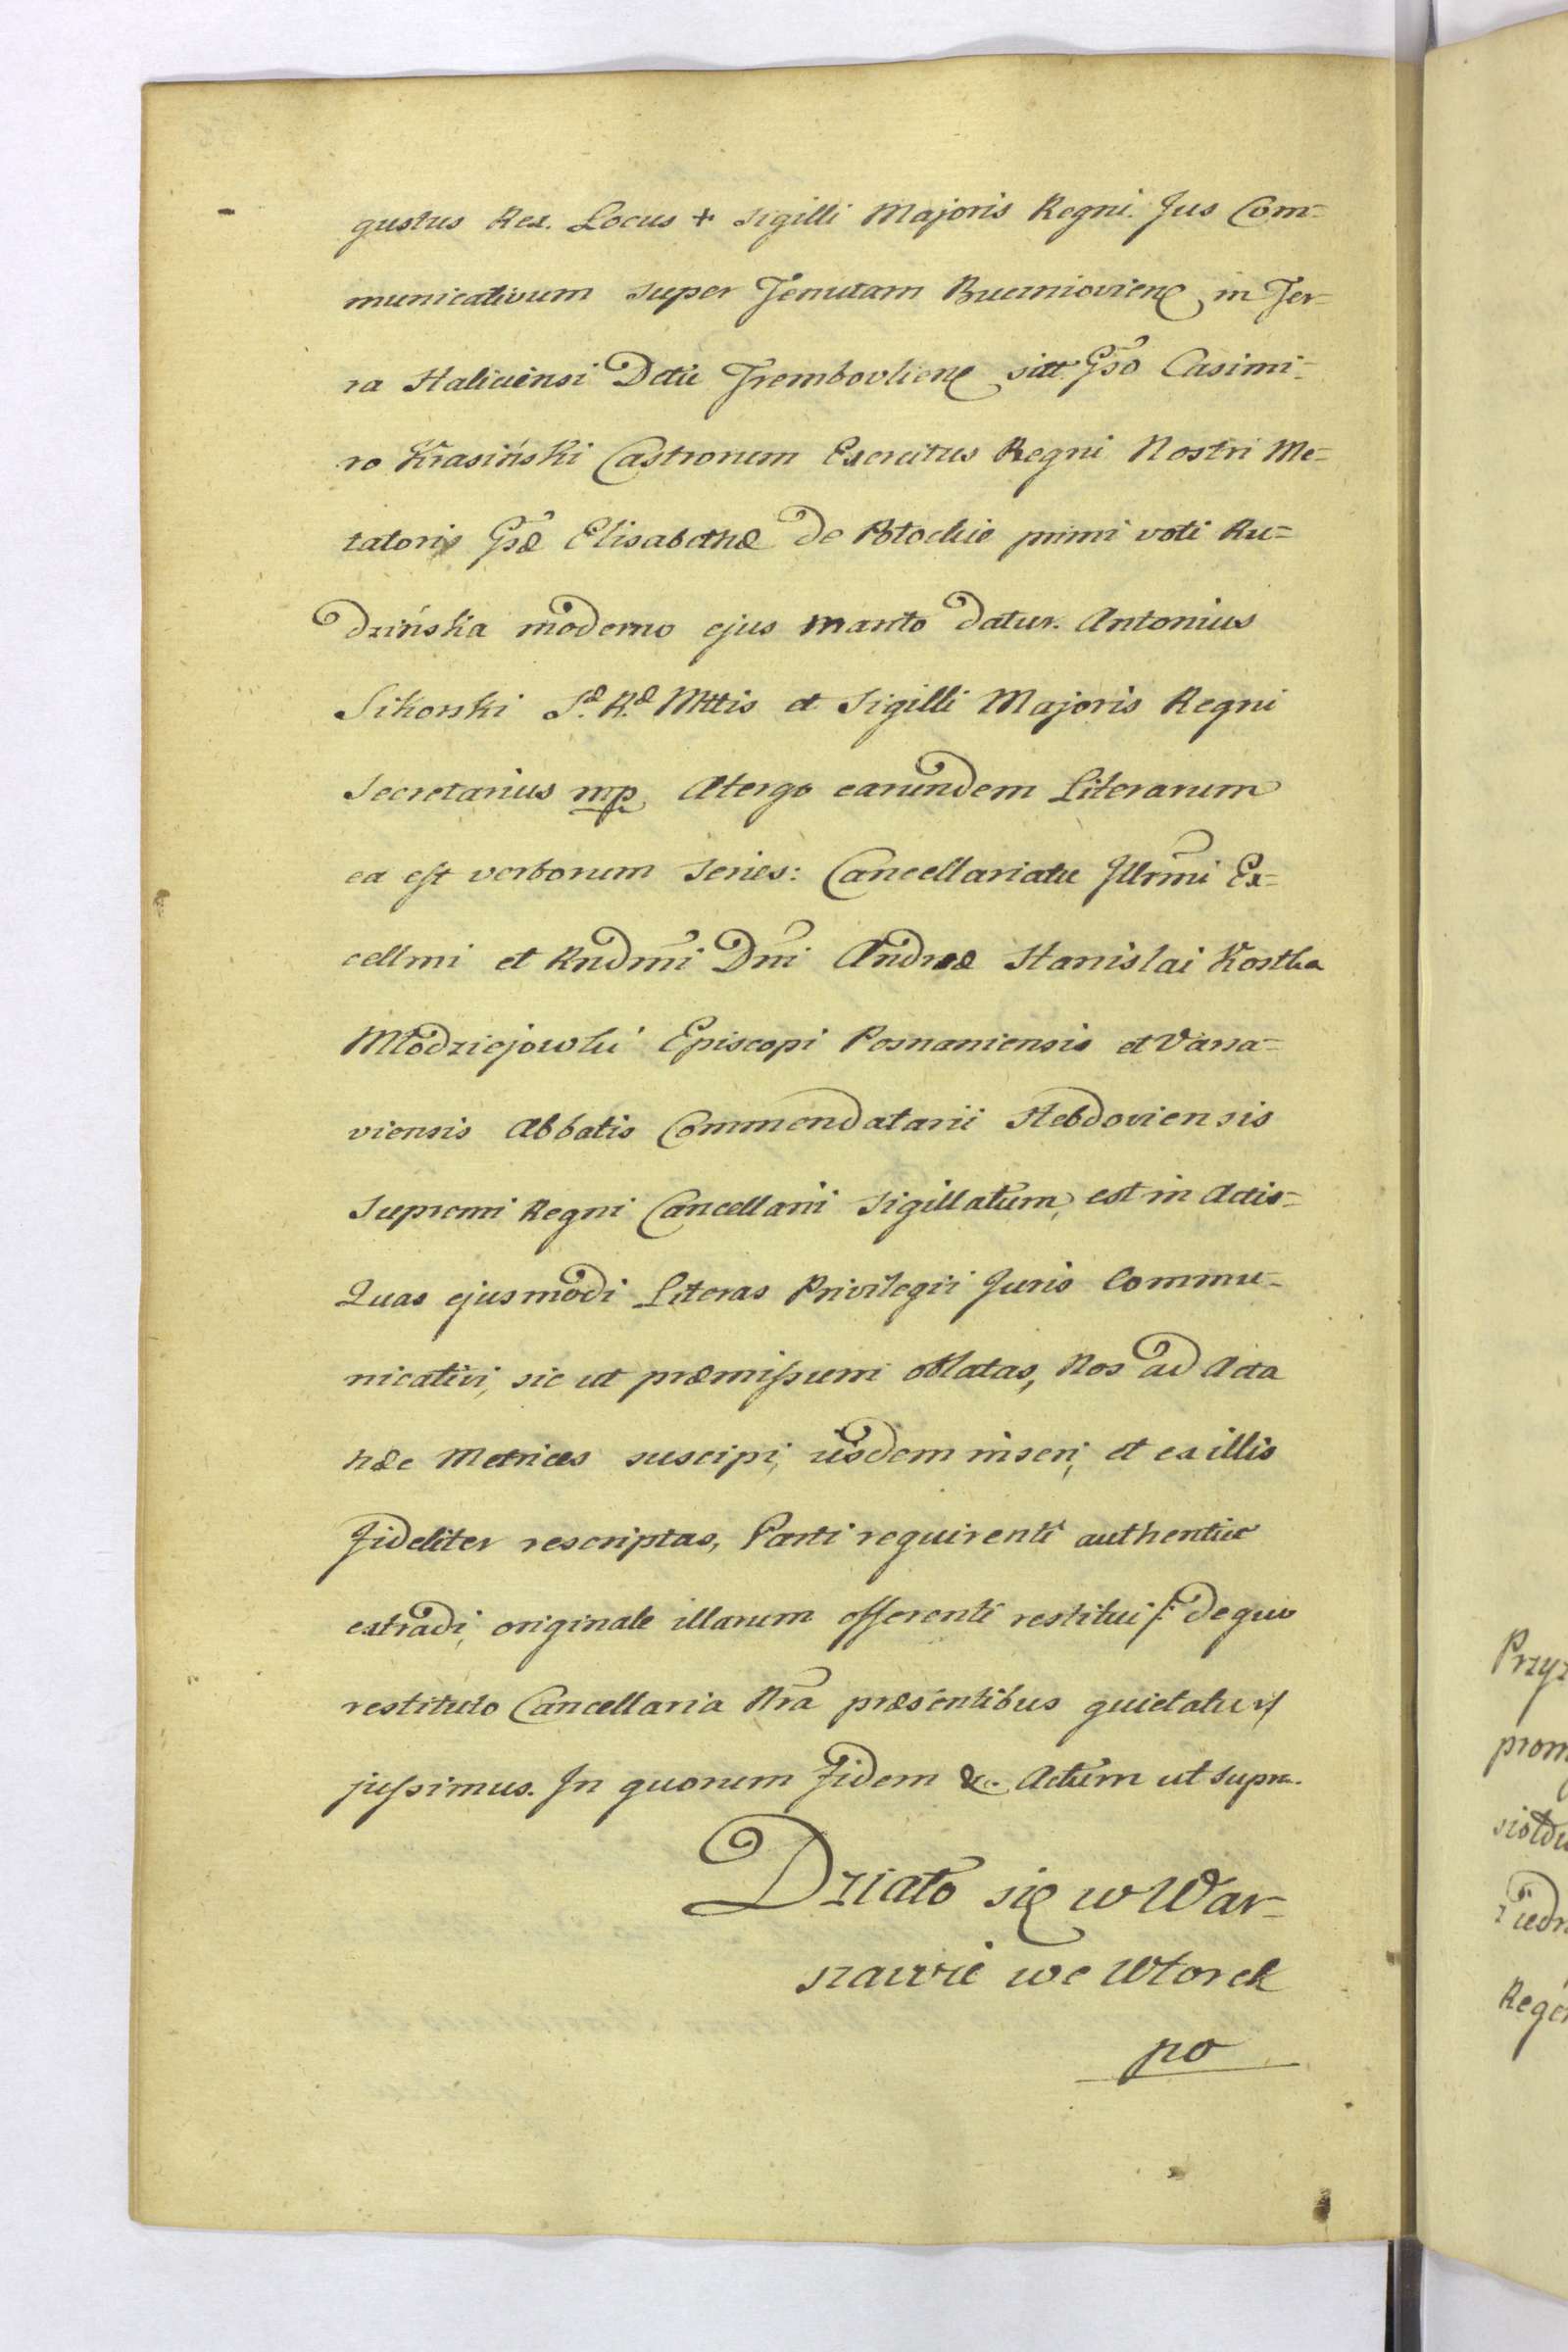 gustus Rex. Locus + Sigilli Majoris Regni. Jus Com=
municativum super Tenutam Bucniovienẽ in Ter=
ra Haliciensi Dctu Trembovlienẽ sitt Gso Casimi=
ro Krasiński Castrorum Exercitus Regni Nostri Me=
tatori Gsæ Elisabethæ de Potockie primi voti Ru=
dzińska moderno ejus marito datur. Antonius
Sikorski Sæ. Ræ Mttis et Sigilli Majoris Regni
Secretarius mp. Atergo earundem Literarum
ea est verborum series: Cancellariatu Illrmi Ex=
cellmi et Rndmi Dni Andreæ Stanislai Kostka
Młodziejowski Episcopi Posnaniensis et Varsa=
viensis Abbatis Commendatarii Hebdoviensis
Supremi Regni Cancellarii Sigillatum, est in Actis=
Quas ejusmodi Literas Privilegii Juris Commu=
nicativi, sic ut præmissum oblatas, Nos ad Acta
hæc Metrices suscipi, iisdem inseri, et ex illis
fideliter rescriptas, Parti requirenti authentice
extradi, originale illarum offerenti restitui /: de quo
restituto Cancellaria Nra præsentibus quietatur :/
jussimus. In quorum Fidem &c. Actum ut supra.
Działo się w War=
szawie we Wtorek
po
Przyz
prom
siołdu
Ziedn
Regen